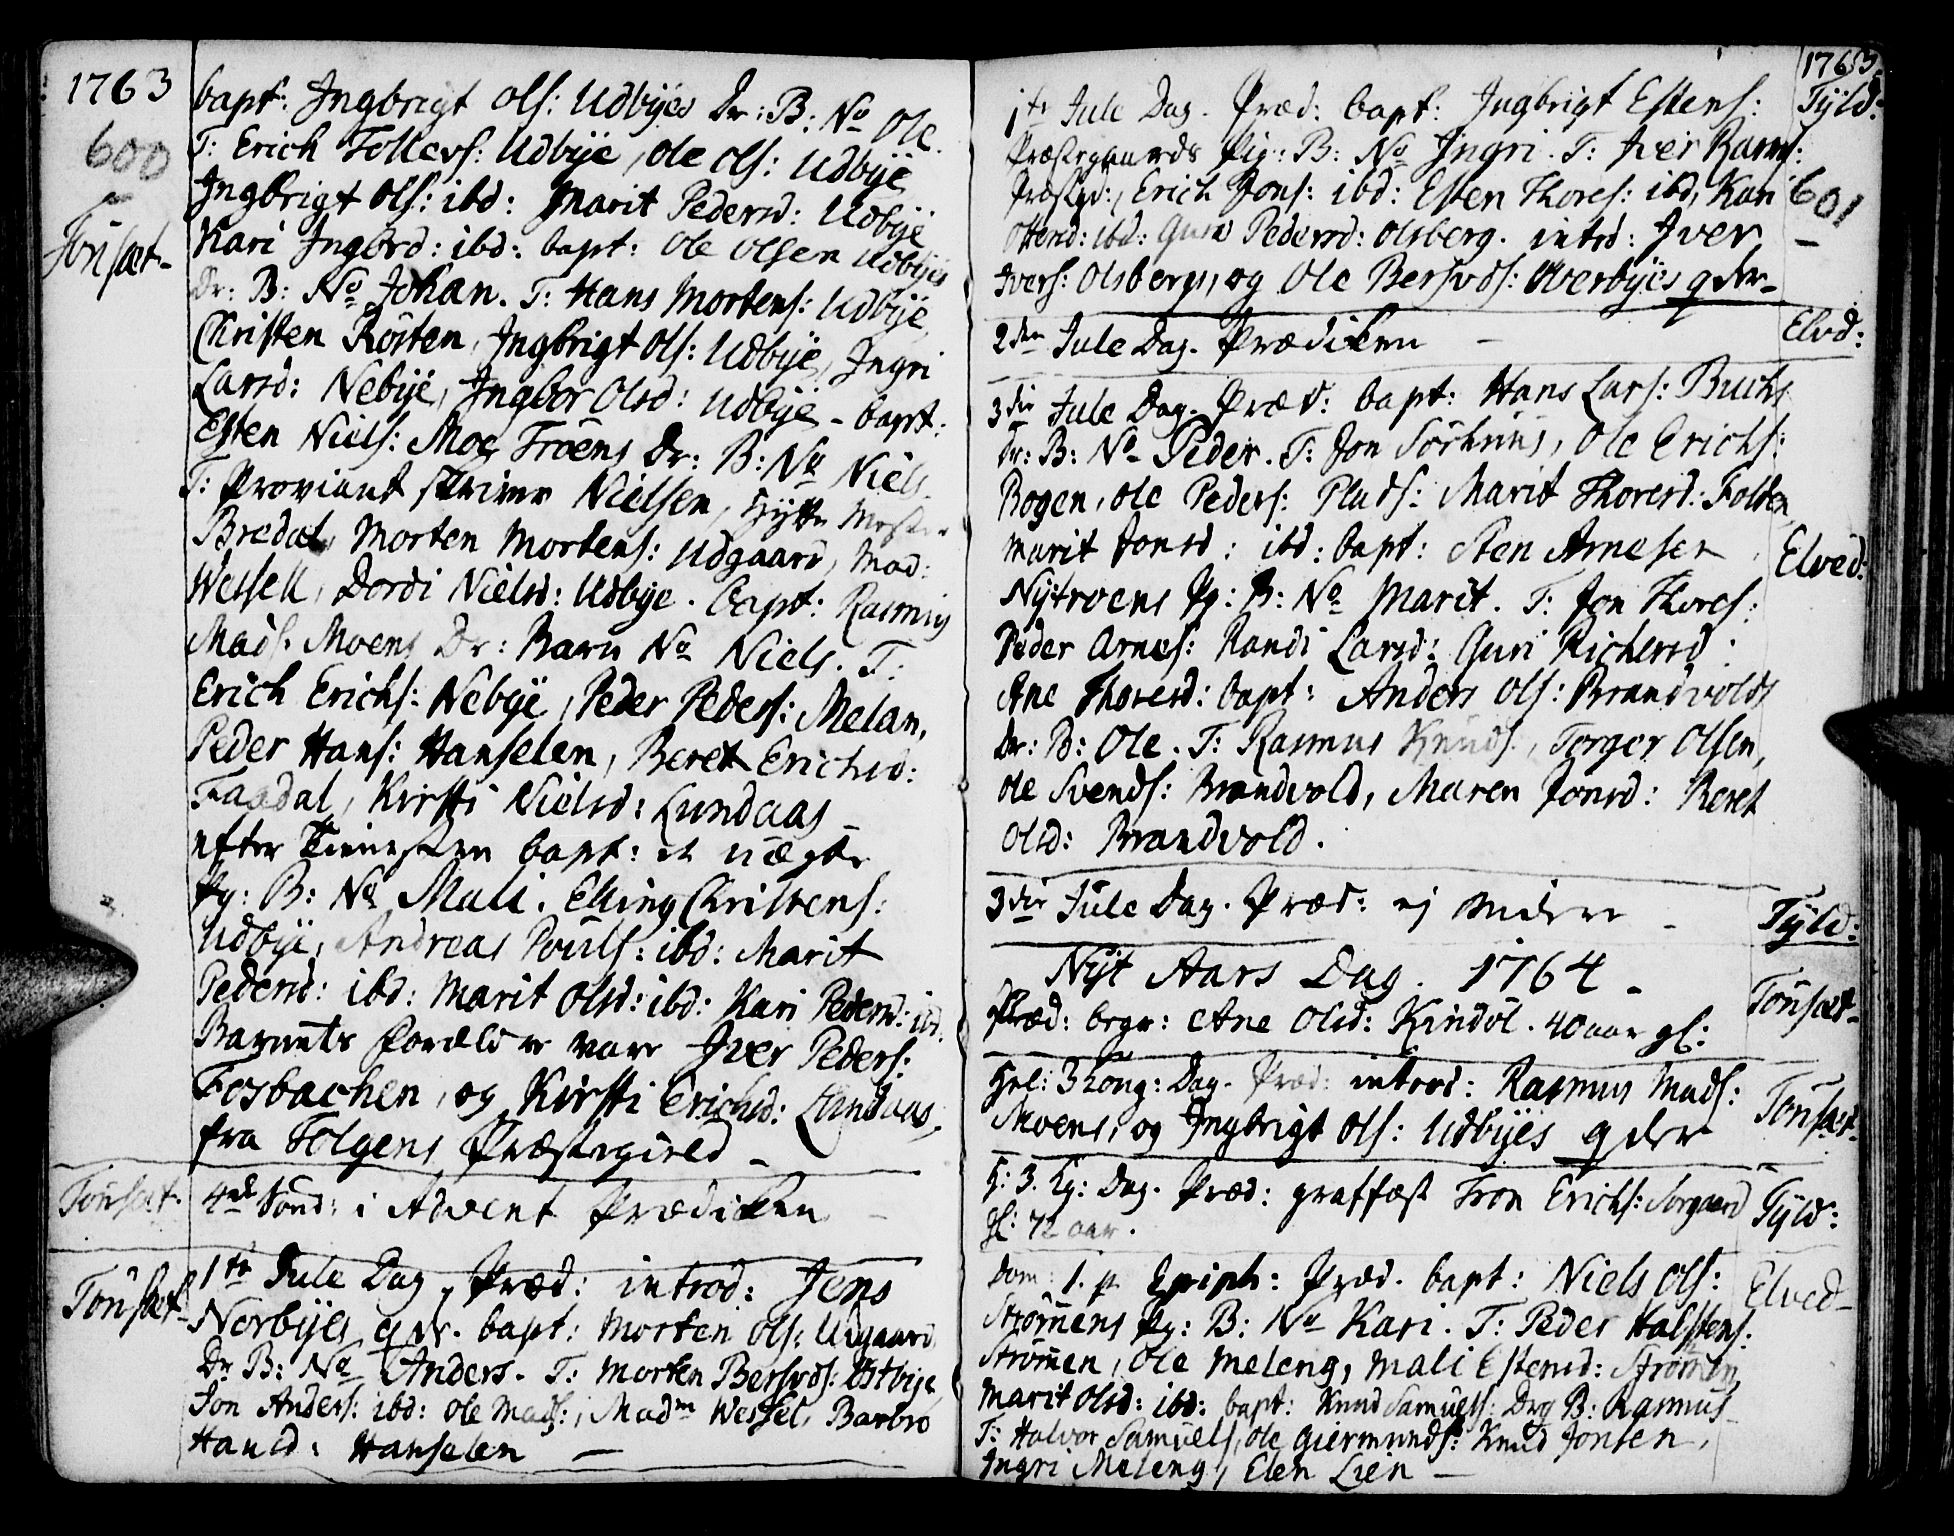 1763
600
Tönsæt-
bapt: Ingbrigt Ols: Udbÿes Dr: B: No Ole.
T: Erich Tollevs: Udbÿe, Ole Ols: Udbÿe
Ingbrigt Ols: ibd: Marit Pedersd: Udbÿe
Kari Ingbrd: ibd: bapt: Ole Olsen Udbÿes
Dr: B: No Johan. T: Hans Mortens: Udbÿe,
Christen Rösten, Ingbrigt Ols: Udbÿe, Ingri
Larsd: Nebÿe, Ingbor Olsd: Udbÿe - bapt:
Esten Niels: Moe Tröens Dr: B: No Niels.
T: Proviant skriver Nielsen, Hytte Mester
Bredal, Morten Mortens: Udgaard, Mad:
Wessell, Dordi Nielsd: Udbye. bapt: Rasmus
Mads: Moens Dr: Barn No Niels. T:
Erich Erichs: Nebÿe, Peder Peders: Melan,
Peder Hans: Hanselen, Beret Erichsd:
Faasdal, Kirsti Nielsd: Lundaas -
efter Tienesten bapt: et uægte
Pg: B: No Mali. Elling Christens:
Udbÿe, Andreas Pouls: ibd: Marit
Pedersd: ibd: Marit Olsd: ibd: Kari Pedersd: ibd.
Barnets Forældre vare Iver Peders:
Fosbachen, og Kirsti Erichsd: Lundaas,
fra Tolgens Præstegield -
Tönsæt-
4de Sönd: i Advent Prædiken -
Tönsæt-
1te Jule Dag, Præd: introd: Jens
Norbÿes qdr. bapt: Morten Ols: Udgaard
Dr B: No Anders. T: Morten Bersvds: Østbÿe,
Jon Anders: ibd: Ole Mads:, Madm Wessel, Barbro
Hansd: Hanselen -
1763
Tÿld:
601
1te Jule Dag. Præd: bapt: Ingbrigt Estens:
Præstegaards Pig: B: No Ingri. T: Iver Rasms:
Præstgd:, Erich Jons: ibd: Esten Thores: ibd, Kari
Ottersd: ibd: Guru Pedersd: Olsberg. introd: Iver
Ivers: Olsbergs, og Ole Bersvds: Øverbÿes qdr-
Elvd:
2den Jule Dag. Prædiken -
3die Jule Dag. Præd: bapt: Hans Lars: Buchs
Dr: B: No Peder. T: Jon Sörhuus, Ole Erichs:
Bogen, Ole Peders: Plads: Marit Thoresd: Folden
Elved:
Marit Jonsd: ibd: bapt: Sten Arnesen
Nÿtroens Pg: B: No Marit. T: Jon Thores:
Peder Arnes: Randi Larsd: Guri Richersd:
Ane Thoresd: bapt: Anders Ols: Brandvolds
Dr: B: Ole. T: Rasmus Knuds:, Torger Olsen,
Ole Svends: Brandvold, Maren Jonsd: Beret
Olsd: Brandvold.
3die Jule Dag. Præd: ej videre -
Tÿld:
Nÿt Aars Dag. 1764 -
Tönsæt-
Præd: begr: Ane Olsd: Kindöl. 40 aar gl:
Hel: 3 Kong: Dag. Præd: introd: Rasmus Mads:
Tönsæt-
Moens, og Ingbrigt Ols: Udbÿes qder
H: 3. Kg: Dag. Præd: graffæst Tron Erichs: Norgaard
Tÿld:
gl: 72 aar.
Dom: 1. p. Epiph: Præd. bapt: Niels Ols:
Elved-
Strömens Pg: B: No Kari. T: Peder Halstens:
Strömen, Ole Meleng, Mali Estensd: Strömen,
Marit Olsd: ibd: bapt: Knud Samuels: Drg B: Rasmus
T: Halvor Samuels, Ole Giermunds: Knud Jonsen,
Ingri Meleng, Elen Lien -